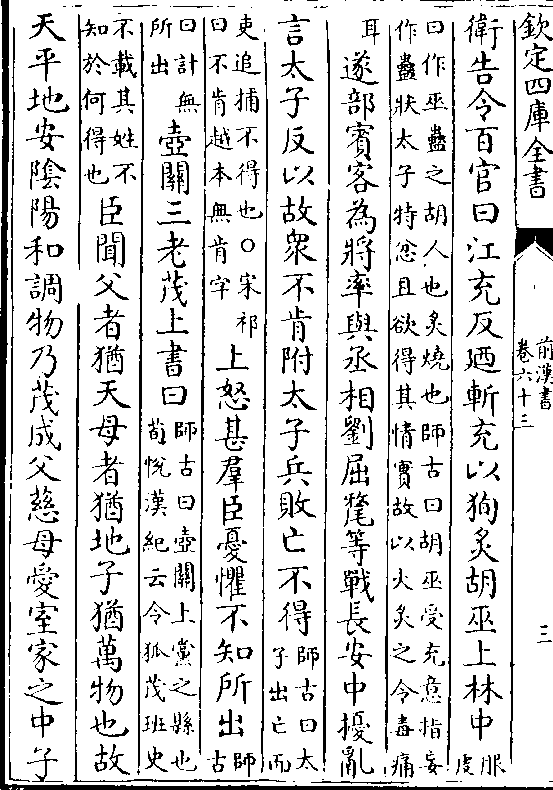 欽定四庫全書
前漢書
卷六十三
三
衛告令百官曰江充反廼斬充以狥炙胡巫上林中服虔
曰作巫蠱之胡人也炙燒也師古曰胡巫受充意指妄
作蠱狀太子特忿且欲得其情實故以火炙之令毒痛
耳遂部賓客為將率與丞相劉屈氂等戰長安中擾亂
言太子反以故衆不肯附太子兵敗亡不得師古曰太子出亡而
吏追捕不得也○宋祁曰不肯越本無肯字上怒甚羣臣憂懼不知所出師古
曰計無所出壺關三老茂上書曰師古曰壺關上黨之縣也荀悅漢紀云令狐茂班史
不載其姓不知於何得也臣聞父者猶天母者猶地子猶萬物也故
天平地安陰陽和調物乃茂成父慈母愛室家之中子